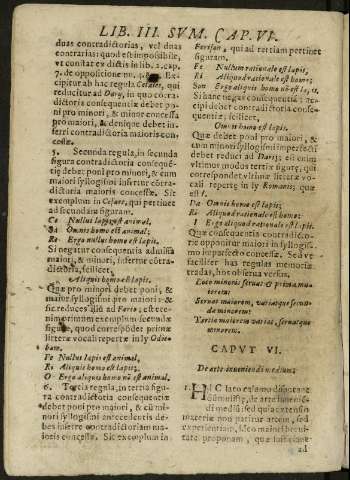 LIB. III. SVM. CAP. VI.
duas contradictorias, vel duas
contrarias: quod est impossibile,
vt constat ex dictis in lib. 2. cap.
7. de oppositione nu. Ex-
cipitur ab hac regula Celaret, qui
reducitur ad Dary, in quo contra-
dictoria consequentiæ debet po-
ni pro minori, & minor concessa
pro maiori, & denique debet in-
ferri contradictoria maioris con-
cessæ.
5. Secunda regula, in secunda
figura contradictoria consequé-
tię debet poni pro minori, & cum
maiori syllogismi infertur cótra-
dictoria maioris concessæ. Sit
exemplum in Cesare, qui pertinet
ad secundam figuram.
Ce Nullus lapis est animal,
Sa Omnis homo est animal,
Re Ergo nullus homo est lapis.
Si negetur consequentia admissa
maiori, & minori, infertur cótra-
dictoria, scilicet,
Aliquis homo est lapis.
Quæ pro minori debet poni, &
maior syllogismi pro maiori: &
sic reduces illá ad Ferio; est ete-
nim primum exemplum secundæ
figuræ, quod correspódet primæ
litteræ vocali repertæ in ly Odie-
bam.
Fe Nullus lapis est animal,
Ri Aliquis homo est lapis,
O Ergo aliquis homo nó est animal.
6. Tertia regula, in tertia figu-
ra contradictoria consequentiæ
debet poni pro maiori, & cú mi-
nori syllogismi antecedentis de-
bes inferre contradictoriam ma-
ioris concessæ. Sit exemplum in
Ferison, qui ad tertiam pertinet
figuram.
Fe Nullum rationale est lapis,
Ri Aliquod rationale est homo;
Son Ergo aliquis homo nó est lapis.
Si hanc neges consequentiá: ac-
cipi debet contradictoria conse-
quentiæ, scilicet,
Omnis homo est lapis.
Quæ debet poni pro maiori, &
cum minori syllogismi imperfecti
debet reduci ad Darij; est enim
vltimus modus tertiæ figuræ, qui
correspondet vltimæ litteræ vo-
cali repertę in ly Romanis; quæ
est I.
Da Omnis homo est lapis,
Ri Aliquod rationale est homo:
I Ergo aliquod rationale est lapis.
Quæ consequentia contradicto-
rie opponitur maiori in syllogis-
mo imperfecto concessæ. Sed vt
facilius has regulas memoriæ
tradas, hos obserua versus.
Loco minoris seruat & prima ma-
Seruat maiorem, variatque secun-
da minorem:
Tertia maiorem variat, seruatque
minorem.
CAPVT VI.
De arte inueniendi medium.
1. HIc latô examo disputare
, de arte inuenié-
di mediú: sed quia extensio
materiæ non patitur artem, sed
experientiam, ideo manci breui-
tate proponam, quæ sufficiant
ad